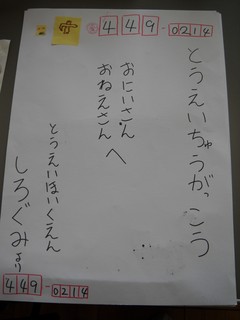 〒449-0214
とうえいちゅうがっこう
おにいさん
おねえさん
へ
とうえいほいくえん
しろぐみより
449-0214